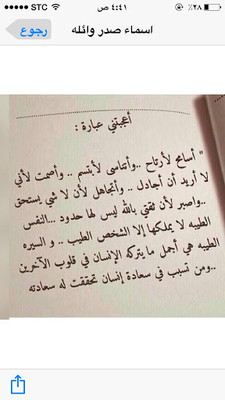 STC ٤:٤١ ص ٢٨٪
رجوع اسماء صدر وائله
أعجبتني عبارة :
" أسامح لأرتاح ..وأتناسى لأبتسم .. وأصمت لأني
لا أريد أن أجادل .. وأتجاهل لأن لا شي يستحق
..وأصبر لأن ثقتي بالله ليس لها حدود ...النفس
الطيبه لا يملكها إلا الشخص الطيب .. و السيره
الطيبه هي أجمل ما يتركه الإنسان في قلوب الآخرين
..ومن تسبب في سعادة إنسان تحققت له سعادته